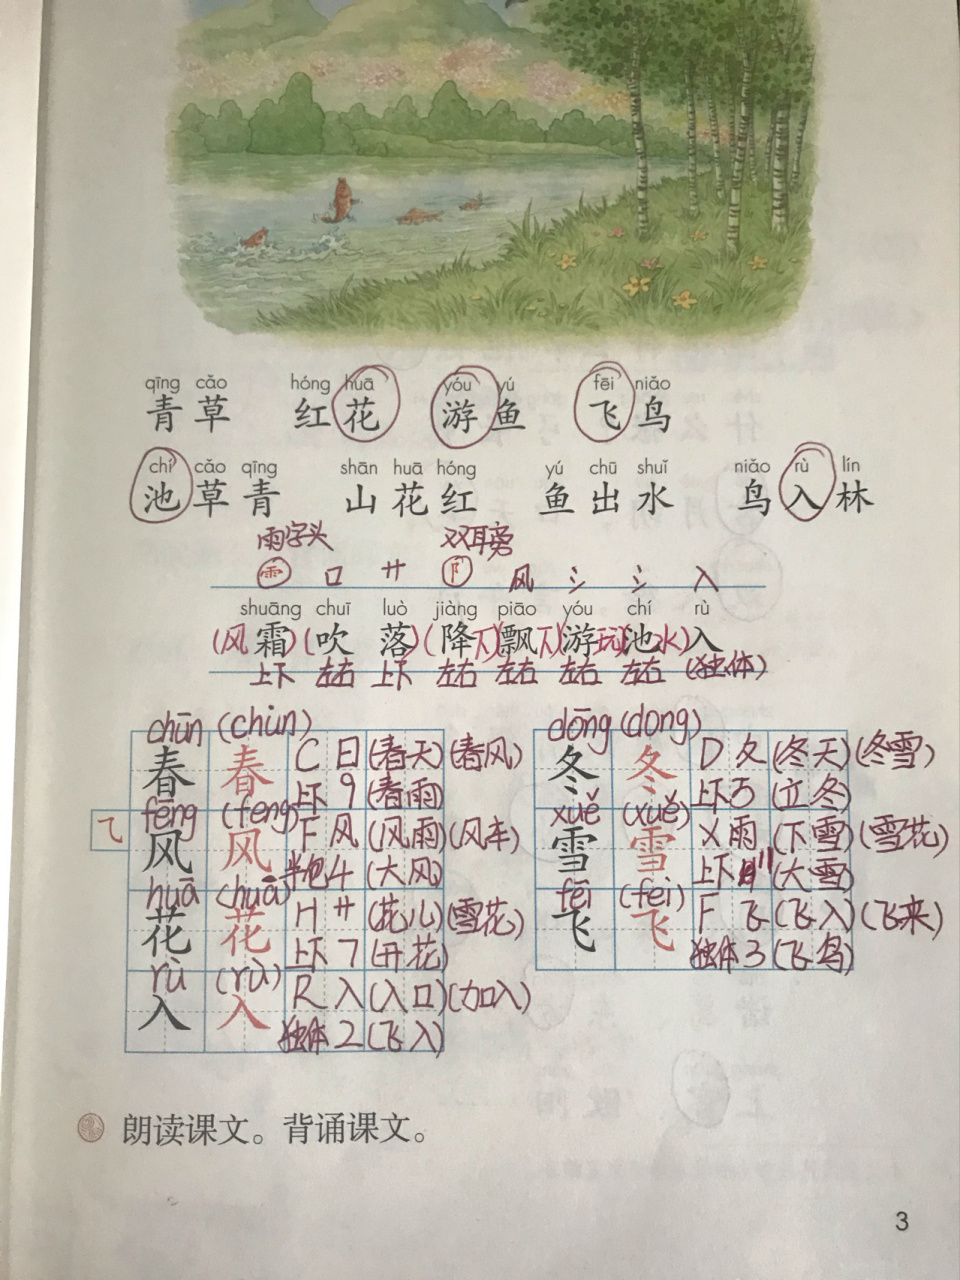 qīng cǎo hóng huā yóu yú fēi niǎo
青草 红花 游鱼 飞鸟
chí cǎo qīng shān huā hóng yú chū shuǐ niǎo rù lín
池草青 山花红 鱼出水 鸟入林
雨字头 双耳旁
⻗ 口 艹 阝 风 氵 氵 入
shuāng chuī luò jiàng piāo yóu chí rù
(风霜)(吹落)(降下)飘下)游玩)池水)入
上下 左右 上下 左右 左右 左右 左右 (独体)
chūn (chūn)
春 春 C 日 (春天)(春风)
上下 9 (春雨)
fēng (feng)
风 风 F 风 (风雨)(风车)
乁
半包 4 (大风)
huā (huā)
花 花 H 艹 (花儿)(雪花)
上下 7 (开花)
rù (rù)
入 入 R 入 (入口)(加入)
独体 2 (飞入)
dōng (dong)
冬 冬 D 夂 (冬天)(冬雪)
上下 5 (立冬)
xuě (xuě)
雪 雪 X 雨 (下雪)(雪花)
上下 11 (大雪)
fēi (fēi)
飞 飞 F 飞 (飞入)(飞来)
独体 3 (飞鸟)
朗读课文。背诵课文。
3